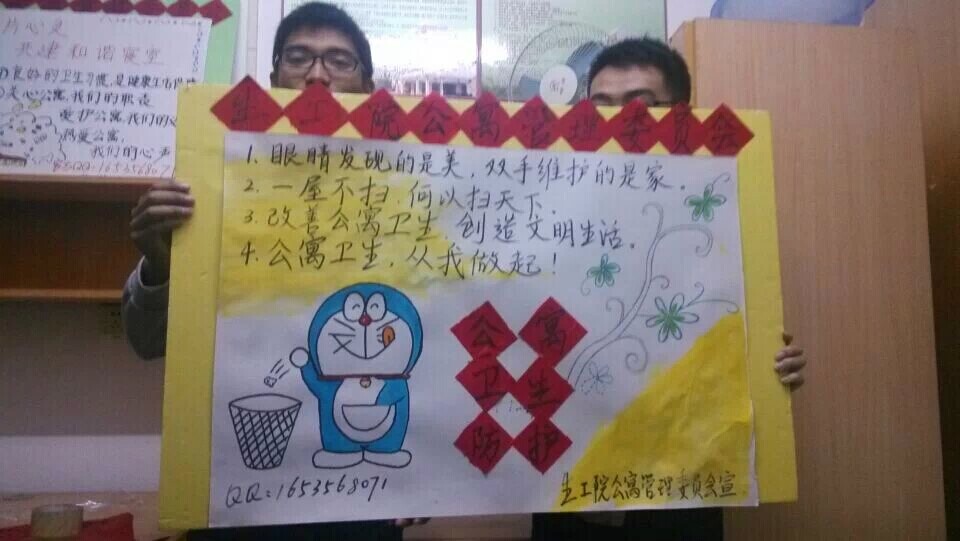 片心灵
共建和谐寝室
良好的卫生习惯,是健康生活
关心公寓,我们的职责
爱护公寓,我们的
热爱公寓,
我们的心声
QQ:165356807
生工院公寓管理委员会
1. 眼睛发现的是美,双手维护的是家。
2. 一屋不扫,何以扫天下.
3. 改善公寓卫生,创造文明生活。
4. 公寓卫生,从我做起!
公寓
卫生
防护
QQ:1653568071
生工院公寓管理委员会宣